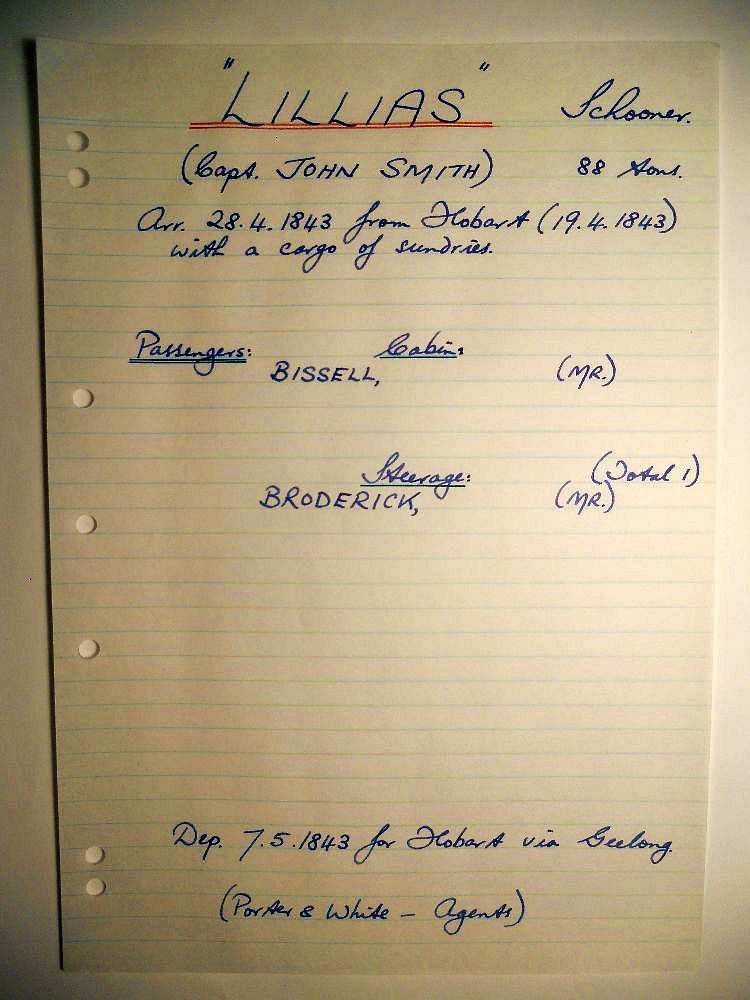 "LILLIAS" Schooner.
(Capt. JOHN SMITH) 88 tons.
Arr. 28.4.1843 from Hobart (19.4.1843)
with a cargo of sundries.
Passengers: Cabin:
BISSELL, (MR.)
Steerage: (Total 1)
BRODERICK, (MR.)
Dep. 7.5.1843 for Hobart via Geelong.
(Porter & White - Agents)